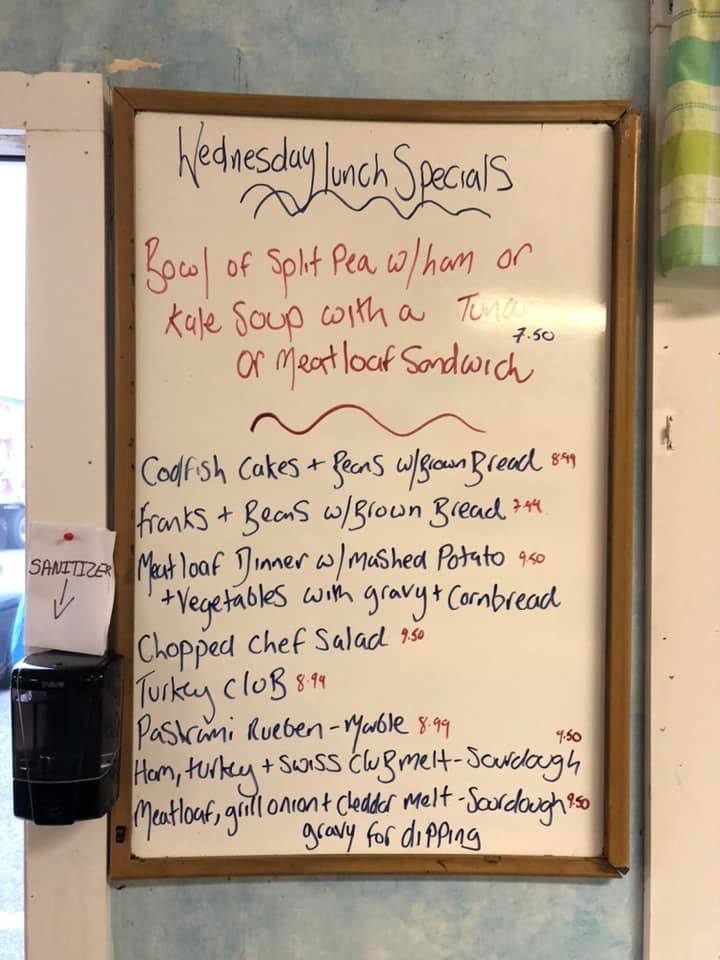 Wednesday Lunch Specials
Bowl of Split Pea w/ham or
Kale Soup with a Tuna
7.50
or Meatloaf Sandwich
Codfish Cakes + Beans w/Brown Bread 8.99
Franks + Beans w/Brown Bread 7.99
Meatloaf Dinner w/mashed Potato 9.50
+ Vegetables with gravy + Cornbread
Chopped Chef Salad 9.50
Turkey CluB 8.99
Pastrami Rueben - Marble 8.99
Ham, turkey + Swiss Club melt - Sourdough 9.50
Meatloaf, grill onion + cheddar melt - Sourdough 9.50
gravy for dipping
SANITIZER